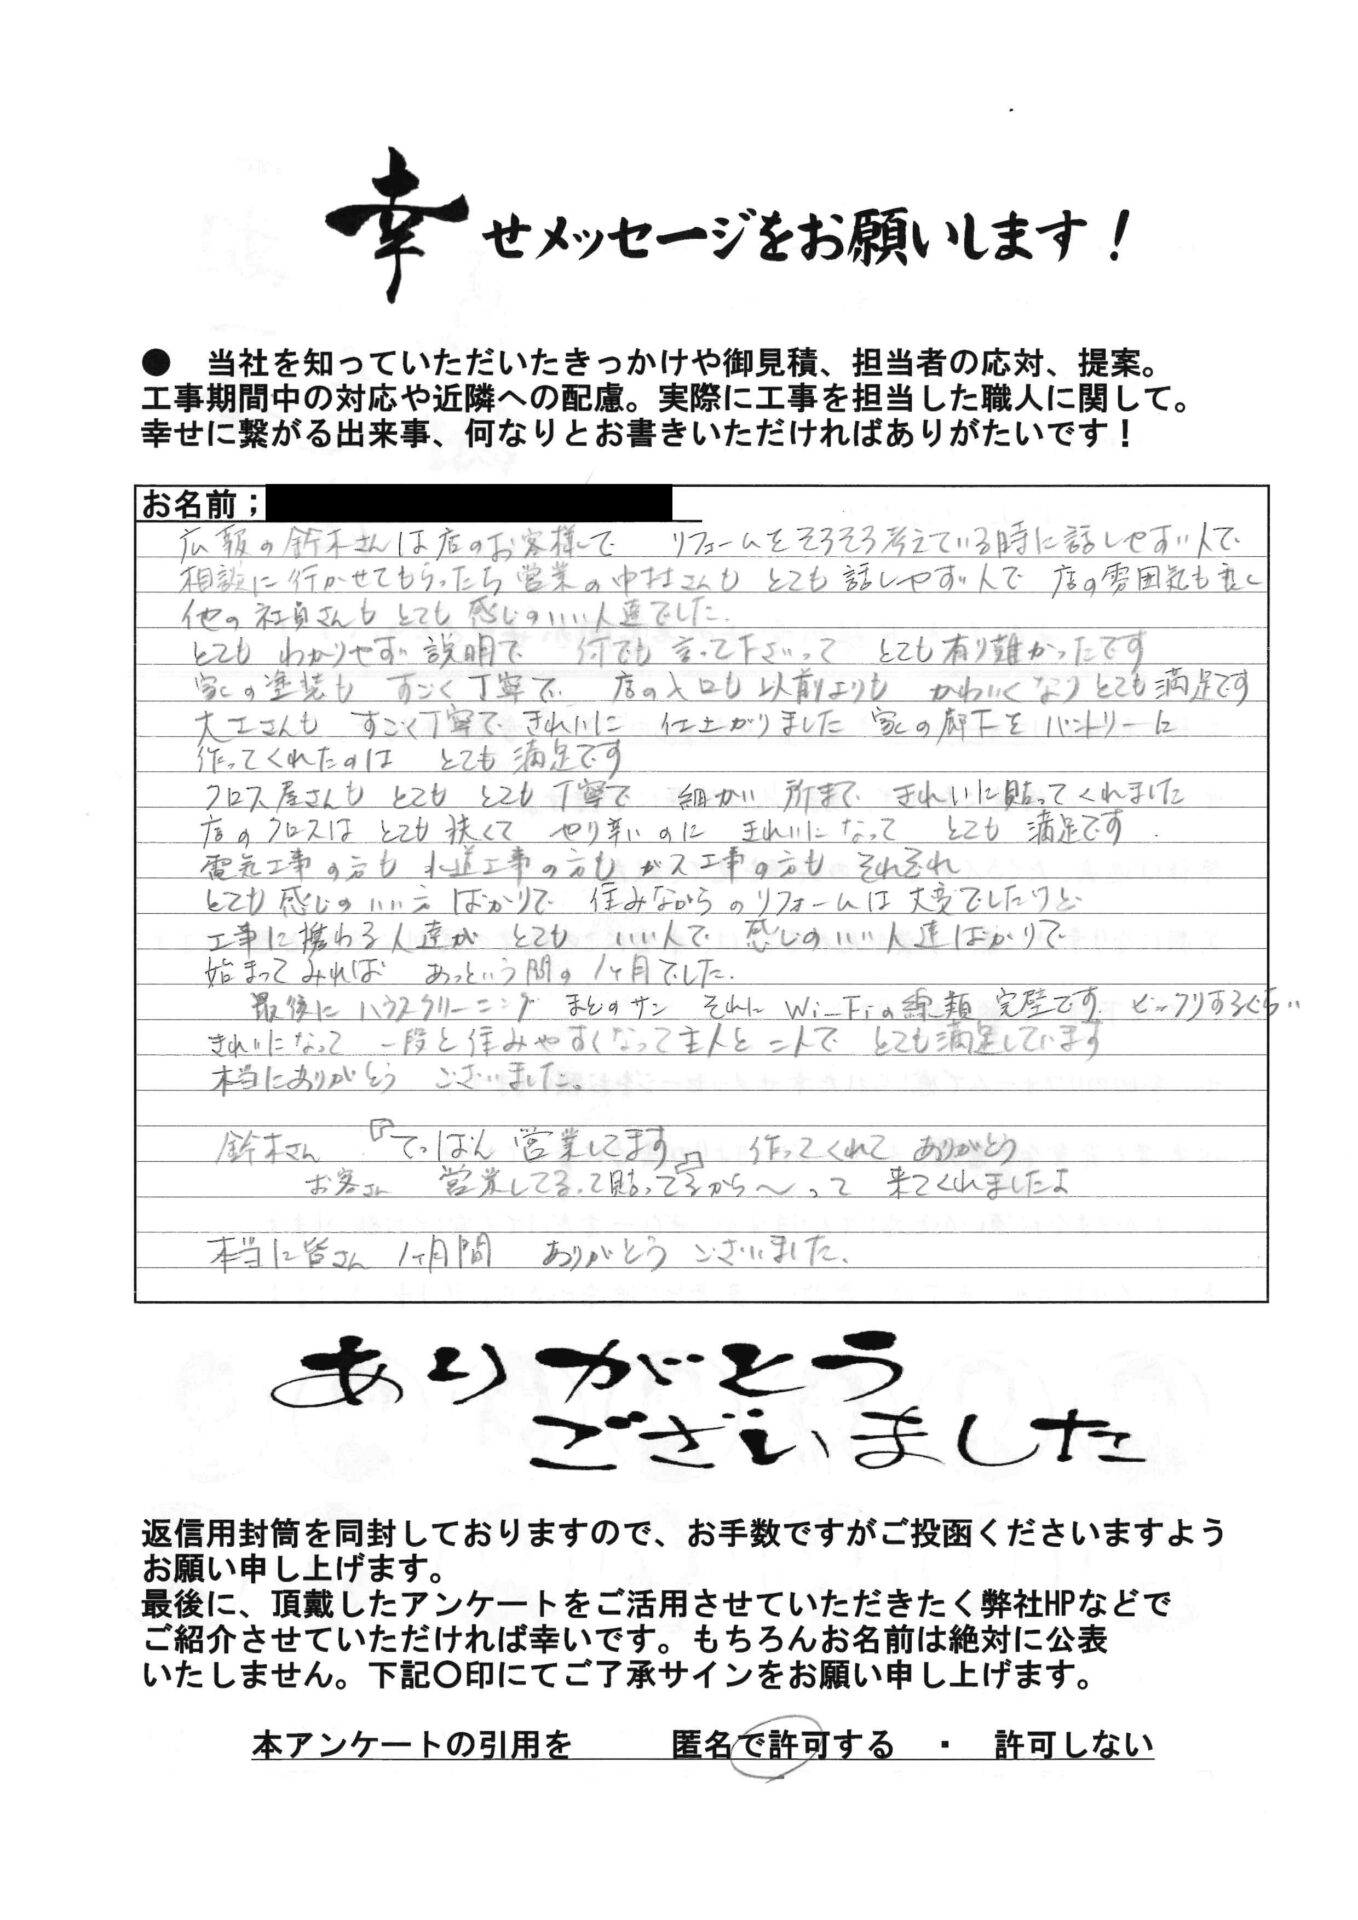 幸せメッセージをお願いします！
●　当社を知っていただいたきっかけや御見積、担当者の応対、提案。
工事期間中の対応や近隣への配慮。実際に工事を担当した職人に関して。
幸せに繋がる出来事、何なりとお書きいただければありがたいです！
お名前；
広報の鈴木さんは店のお客様で　リフォームをそろそろ考えている時に話しやすい人で
相談に行かせてもらったら営業の中村さんも とても 話しやすい人で 店の雰囲気も良く
他の社員さんも とても 感じのいい人達でした.
とても わかりやすい 説明で　何でも 言って下さって　とても有り難かったです
家の塗装も　すごく丁寧で　店の入口も 以前よりも　かわいくなりとても満足です
大工さんも　すごく丁寧で きれいに　仕上がりました 家の廊下をパントリーに
作ってくれたのは　とても 満足です
クロス屋さんも とても とても 丁寧で　細かい 所まで きれいに貼ってくれました
店のクロスは とても 狭くて　やり辛いのに　きれいになって　とても 満足です.
電気工事の方も 水道工事の方も ガス工事の方も それぞれ
とても 感じのいい方 ばかりで　住みながらのリフォームは 大変でしたけど
工事に携わる人達が　とても　いい人で　感じのいい人達ばかりで
始まってみれば　あっという間の 1ヶ月でした.
最後に ハウスクリーニング まどのサン それに Wi-Fiの線類 完璧です. ビックリするぐらい
きれいになって 一段と住みやすくなって主人と二人で　とても満足しています
本当にありがとう ございました。
鈴木さん 『てっぱん 営業してます』　作ってくれて ありがとう
お客さん　営業してるって貼ってるから〜って　来てくれましたよ
本当に皆さん 1ヶ月間　ありがとう ございました.
ありがとう
ございました
返信用封筒を同封しておりますので、お手数ですがご投函くださいますよう
お願い申し上げます。
最後に、頂戴したアンケートをご活用させていただきたく弊社HPなどで
ご紹介させていただければ幸いです。もちろんお名前は絶対に公表
いたしません。下記〇印にてご了承サインをお願い申し上げます。
本アンケートの引用を　　　匿名で許可する　・　許可しない